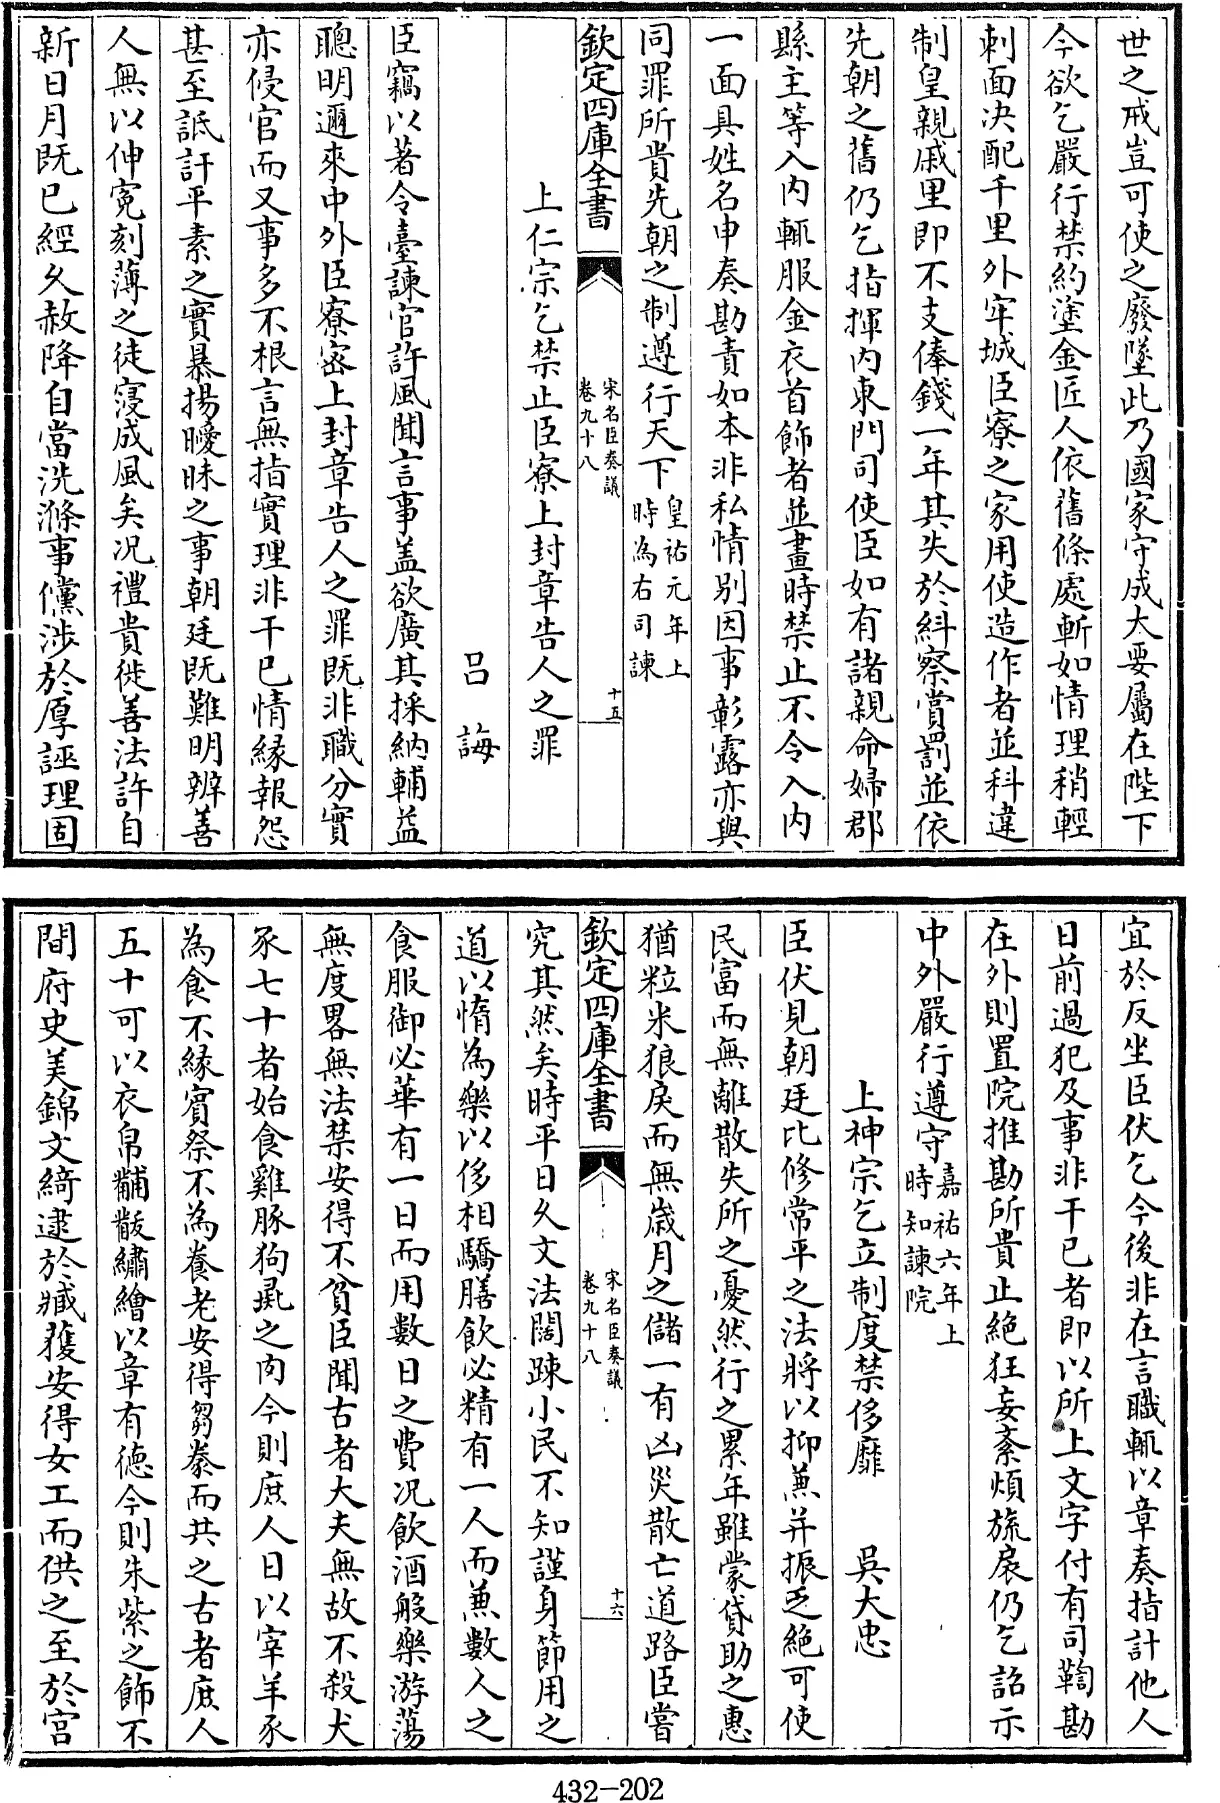 世之戒豈可使之廢墜此乃國家守成大要屬在陛下
今欲乞嚴行禁約塗金匠人依舊條處斬如情理稍輕
刺面決配千里外牢城臣寮之家用使造作者並科違
制皇親戚里即不支俸錢一年其失於糾察賞罰並依
先朝之舊仍乞指揮内東門司使臣如有諸親命婦郡
縣主等入内輒服金衣首飾者並畫時禁止不令入内
一面具姓名申奏勘責如本非私情別因事彰露亦與
同罪所貴先朝之制遵行天下皇祐元年上
時為右司諫
欽定四庫全書
宋名臣奏議
卷九十八
十五
上仁宗乞禁止臣寮上封章告人之罪
吕誨
臣竊以著令臺諫官許風聞言事盖欲廣其採納輔益
聰明邇來中外臣寮密上封章告人之罪既非職分實
亦侵官而又事多不根言無指實理非干已情緣報怨
甚至詆訐平素之實暴揚曖昧之事朝廷既難明辨善
人無以伸寃刻薄之徒寖成風矣况禮貴徙善法許自
新日月既已經久赦降自當洗滌事儻涉於厚誣理固
宜於反坐臣伏乞今後非在言職輒以章奏指計他人
日前過犯及事非干已者即以所上文字付有司鞫勘
在外則置院推勘所貴止絶狂妄紊煩旒扆仍乞詔示
中外嚴行遵守嘉祐六年上
時知諫院
上神宗乞立制度禁侈靡 吳大忠
臣伏見朝廷比修常平之法將以抑兼并振乏絶可使
民富而無離散失所之憂然行之累年雖蒙貸助之惠
猶粒米狼戾而無歲月之儲一有凶災散亡道路臣嘗
欽定四庫全書
宋名臣奏議
卷九十八
十六
究其然矣時平日久文法闊踈小民不知謹身節用之
道以惰為樂以侈相驕膳飲必精有一人而兼數人之
食服御必華有一日而用數日之費况飲酒般樂游蕩
無度畧無法禁安得不貧臣聞古者大夫無故不殺犬
豕七十者始食雞豚狗彘之肉今則庶人日以宰羊豕
為食不緣賓祭不為養老安得芻豢而共之古者庶人
五十可以衣帛黼黻繡繪以章有德今則朱紫之飾不
間府史美錦文綺逮於臧獲安得女工而供之至於宫
432-202